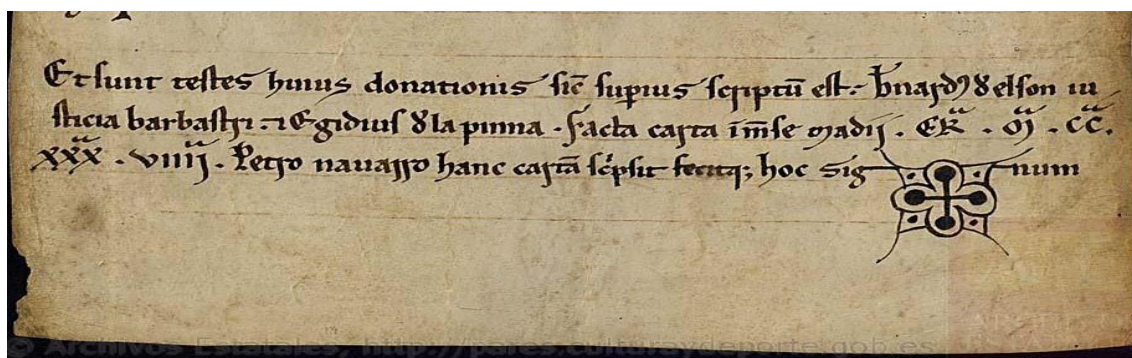 Et sunt testes huius donationis sic̄ sup̄ius scriptū est. b̄nardꝰ d elson iu
sticia barbastri. ⁊ Egidius d la pinna. facta carta ī m̄se madij. ERᵃ. Mᵃ. CCᵃ.
XXXᵃ. viiijᵃ. Petro nauarro hanc cartā sc̄psit fecitqꝫ hoc Sig num
© Archivos Estatales, http://pares.culturaydeporte.gob.es